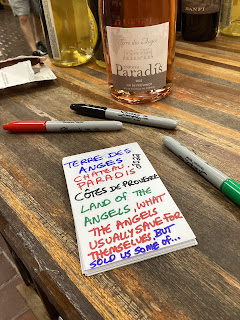 Terre des Anges
Paradis
BANFI
TERRE DES
ANGES
CHATEAU
PARADIS
CÔTES DE PROVENCE
LAND OF THE
ANGELS, WHAT
THE ANGELS
USUALLY SAVE FOR
THEMSELVES, BUT
SOLD US SOME OF...